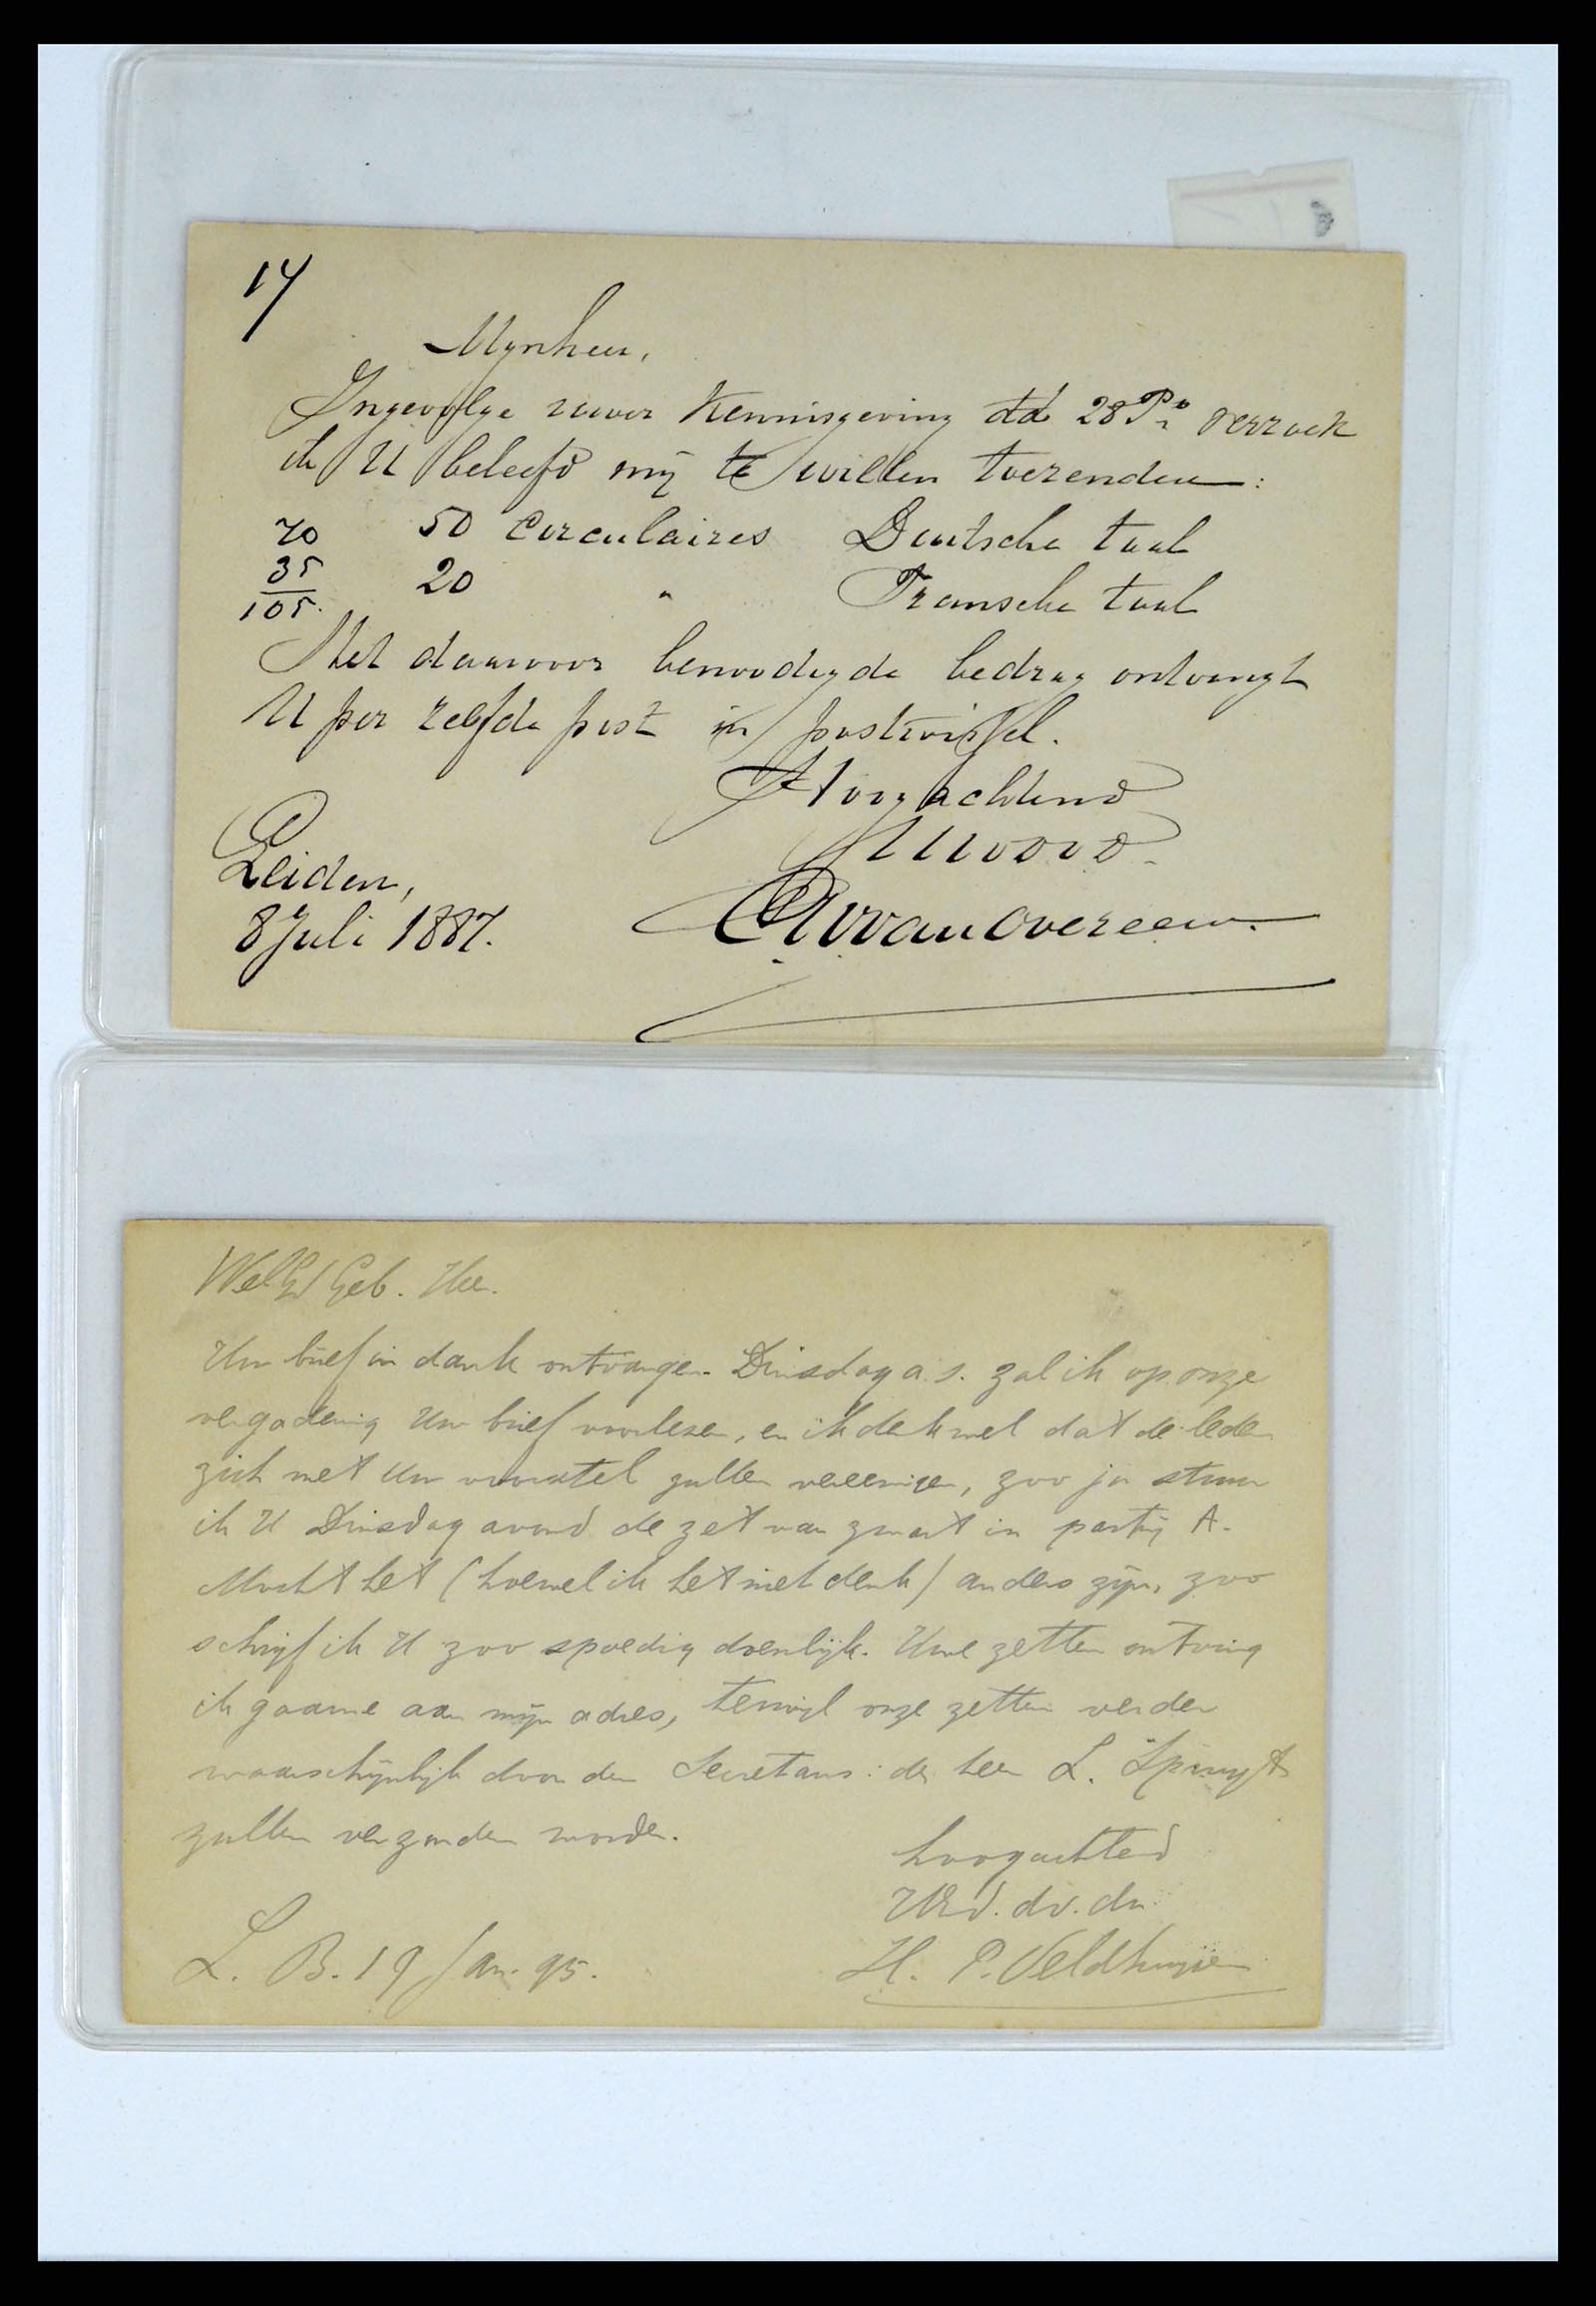 17
Mynheer,
Ingevolge uwer Kennisgeving dd 28 Po verzoek
ik U beleefd mij te willen toezenden:
70 50 Circulaires Duitsche taal
35 20 " Fransche taal
105.
Het daarvoor benoodigde bedrag ontvangt
U per zelfde post in postwissel.
Hoogachtend
Leiden,
8 Juli 1887. van Overzeeuw.
WelEd Geb. Heer.
Uw brief in dank ontvangen. Dinsdag a.s. zal ik op onze
vergadering Uw brief voorlezen, en ik denk wel dat de leden
zich met Uw voorstel zullen vereenigen, zoo ja stuur
ik U Dinsdag avond de zet van zwart in partij A.
Mocht het (hoewel ik het niet denk) anders zijn, zoo
schrijf ik U zoo spoedig doenlijk. Uwe zetten ontving
ik gaarne aan mijn adres, terwijl onze zetten verder
waarschijnlijk door den Secretaris: de heer L.
zullen verzonden worden.
hoogachtend
UEd. dv. dn.
L. B. 19 Jan. 95. H. P. Veldhuijzen